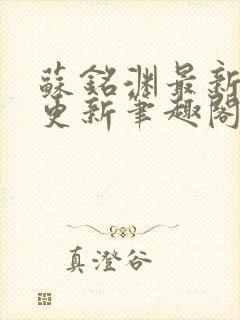 蘇銘淵最新
更新筆趣閣
真澄谷